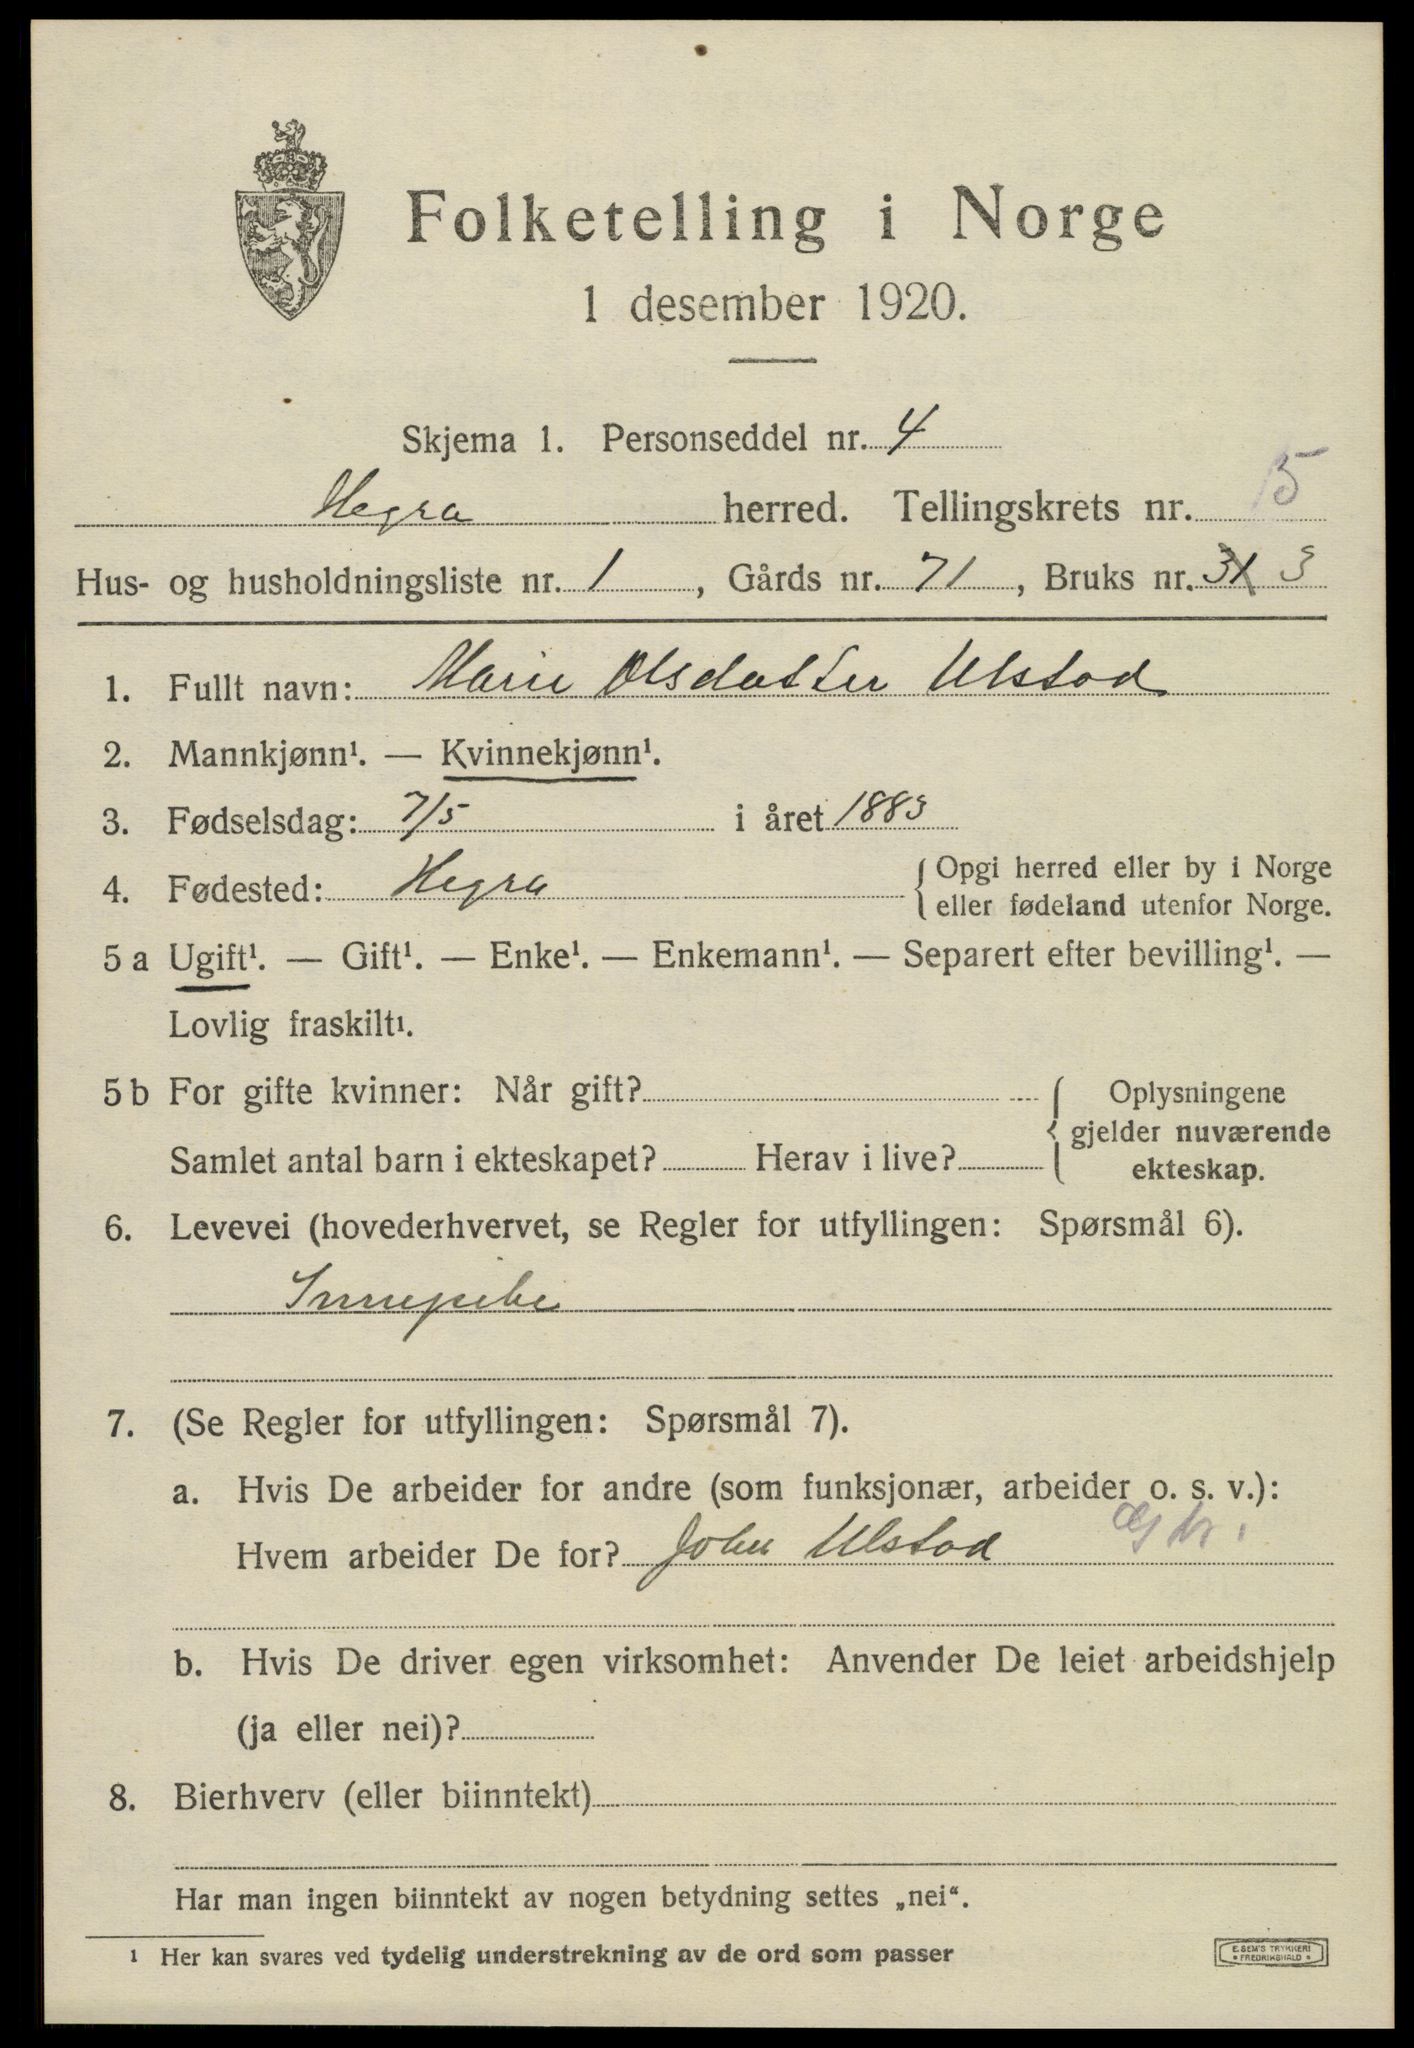 Folketelling i Norge
1 desember 1920.
Skjema 1. Personseddel nr. 4
Hegra herred. Tellingskrets nr. 15
Hus- og husholdningsliste nr. 1, Gårds nr. 71, Bruks nr. 31 3
1. Fullt navn: Marie Olsdatter Ulstad
2. Mannkjønn¹. — Kvinnekjønn¹.
3. Fødselsdag: 7/5 i året 1883
4. Fødested: Hegra { Opgi herred eller by i Norge
eller fødeland utenfor Norge.
5 a Ugift¹. — Gift¹. — Enke¹. — Enkemann¹. — Separert efter bevilling¹. —
Lovlig fraskilt¹.
5 b For gifte kvinner: Når gift? { Oplysningene
gjelder nuværende
Samlet antal barn i ekteskapet? Herav i live? ekteskap.
6. Levevei (hovederhvervet, se Regler for utfyllingen: Spørsmål 6).
Innepike
7. (Se Regler for utfyllingen: Spørsmål 7).
a. Hvis De arbeider for andre (som funksjonær, arbeider o. s. v.):
Hvem arbeider De for? John Ulstad
b. Hvis De driver egen virksomhet: Anvender De leiet arbeidshjelp
(ja eller nei)?
8. Bierhverv (eller biinntekt)
Har man ingen biinntekt av nogen betydning settes „nei“.
¹ Her kan svares ved tydelig understrekning av de ord som passer
E. SEM'S TRYKKERI
FREDRIKSHALD